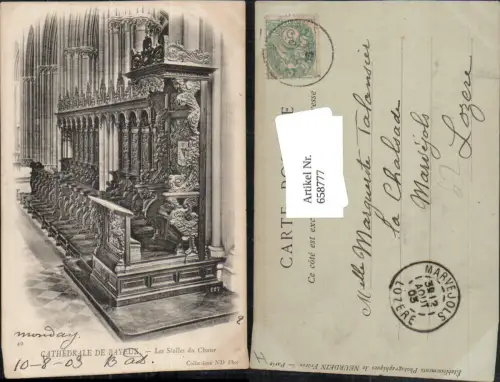 monday.
49
CATHÉDRALE DE BAYEUX. — Les Stalles du Chœur
Collections ND Phot
10-8-03
CARTE POSTALE
Ce côté est exclusivement réservé à l'adresse
Artikel Nr.
658777
Mlle Marguerite Talansier
La Chalsade
Marvéjols
Lozère
MARVEJOLS
AOUT
03
LOZERE
Etablissements Photographiques de NEURDEIN Frères - Paris